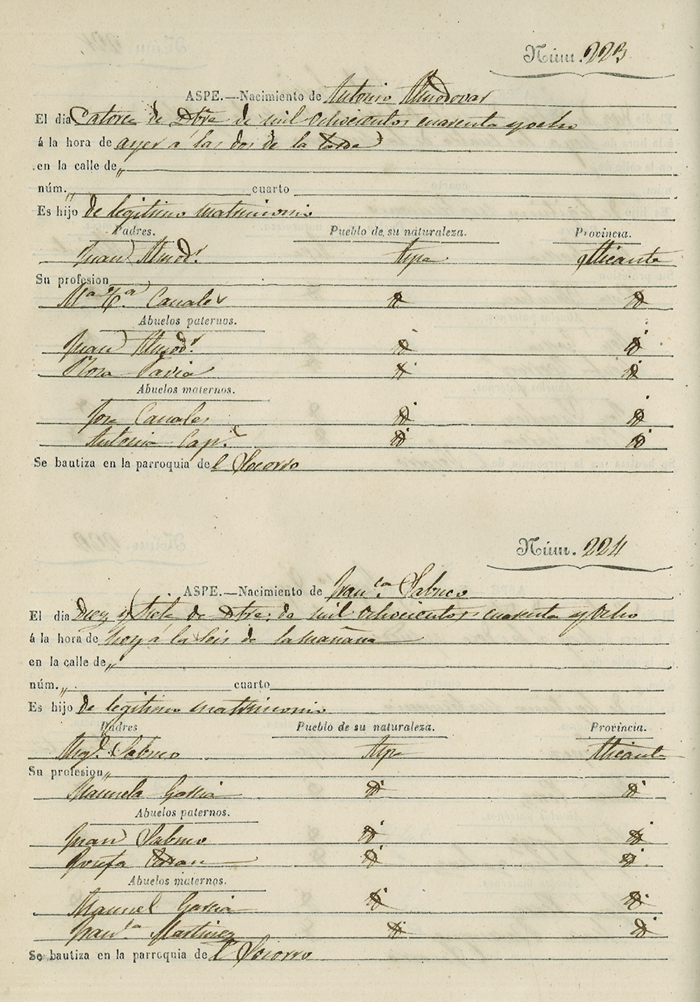 Núm. 223
ASPE.—Nacimiento de Antonio Almodovar
El dia Catorce de Dbre de mil ochocientos cuarenta y ocho
á la hora de ayer a las dos de la tarde
en la calle de „
núm. „ cuarto
Es hijo de legitimo matrimonio
Padres. Pueblo de su naturaleza. Provincia.
Juan Almod.r Aspe Alicante
Su profesion
M.a Canales id id
Abuelos paternos.
Juan Almod.r id id
Rosa Pavia id id
Abuelos maternos.
Jose Canales id id
Antonia id id
Se bautiza en la parroquia del Socorro
Núm. 224
ASPE.—Nacimiento de Fran.ca Sabuco
El dia Diez y siete de Dbre. de mil ochocientos cuarenta y Ocho
á la hora de hoy a la seis de la mañana
en la calle de „
núm. „ cuarto
Es hijo de legitimo matrimonio
Padres Pueblo de su naturaleza. Provincia.
Mig.l Sabuco Aspe Alicante
Su profesion „
Manuela Garcia id id
Abuelos paternos.
Juan Sabuco id id
Josefa id id
Abuelos maternos.
Manuel Garcia id id
Fran.ca Martinez id id
Se bautiza en la parroquia del Socorro